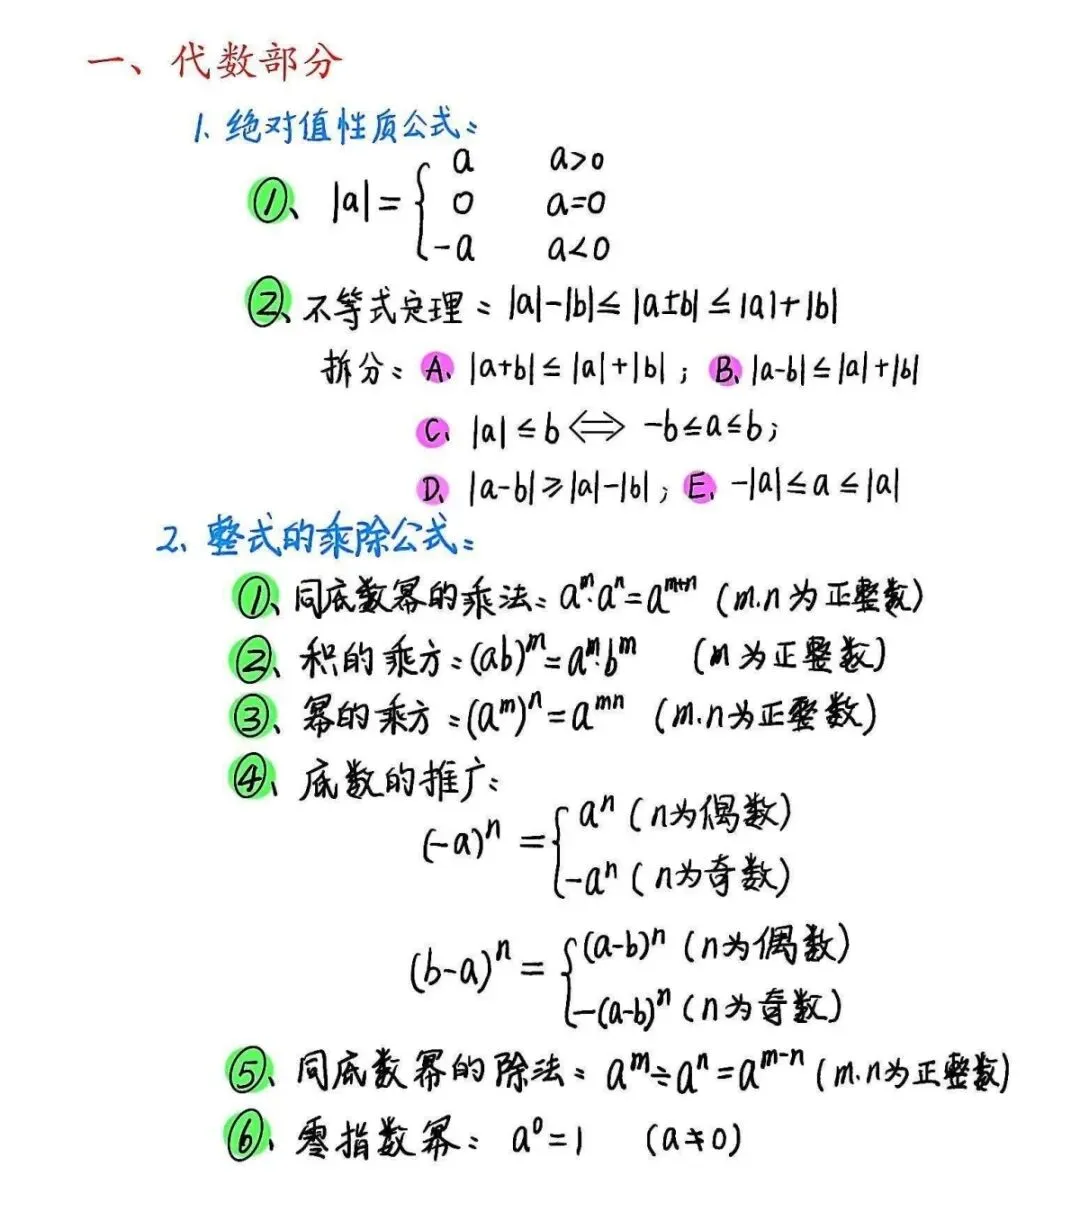 一、代数部分
1、绝对值性质公式：
①、|a|={ a a>0
0 a=0
-a a<0
②、不等式定理：|a|-|b|≤|a±b|≤|a|+|b|
拆分：A、|a+b|≤|a|+|b|；B、|a-b|≤|a|+|b|
C、|a|≤b⟺-b≤a≤b；
D、|a-b|≥|a|-|b|；E、-|a|≤a≤|a|
2、整式的乘除公式：
①、同底数幂的乘法：aᵐ·aⁿ=aᵐ⁺ⁿ（m.n为正整数）
②、积的乘方：(ab)ᵐ=aᵐ·bᵐ（m为正整数）
③、幂的乘方：(aᵐ)ⁿ=aᵐⁿ（m.n为正整数）
④、底数的推广：
(-a)ⁿ={ aⁿ（n为偶数）
-aⁿ（n为奇数）
(b-a)ⁿ={ (a-b)ⁿ（n为偶数）
-(a-b)ⁿ（n为奇数）
⑤、同底数幂的除法：aᵐ÷aⁿ=aᵐ⁻ⁿ（m.n为正整数）
⑥、零指数幂：a⁰=1（a≠0）